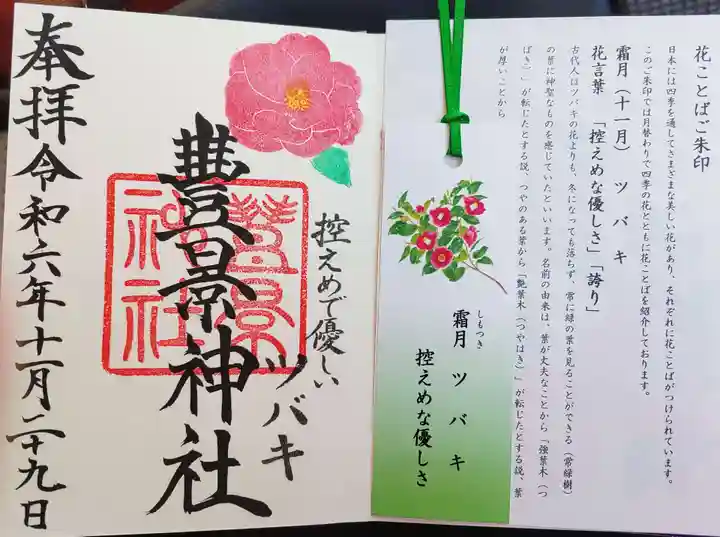 花ことばご朱印
日本には四季を通してさまざまな美しい花があり、それぞれに花ことばがつけられています。
このご朱印では月替わりで四季の花とともに花ことばを紹介しております。
霜月(十一月) ツバキ
花言葉 「控えめな優しさ」「誇り」
古代人はツバキの花よりも、冬になっても落ちず、常に緑の葉を見ることができる(常緑樹)
の葉に神聖なものを感じていたといいます。名前の由来は、葉が丈夫なことから「強葉木(つ
ばき)」が転じたとする説、つやのある葉から「艶葉木(つやはき)」が転じたとする説、葉
が厚いことから
しもつき
霜月 ツバキ
控えめな優しさ
控えめで優しい
ツバキ
豊景神社
豊景神社
奉拝 令和六年十一月二十九日